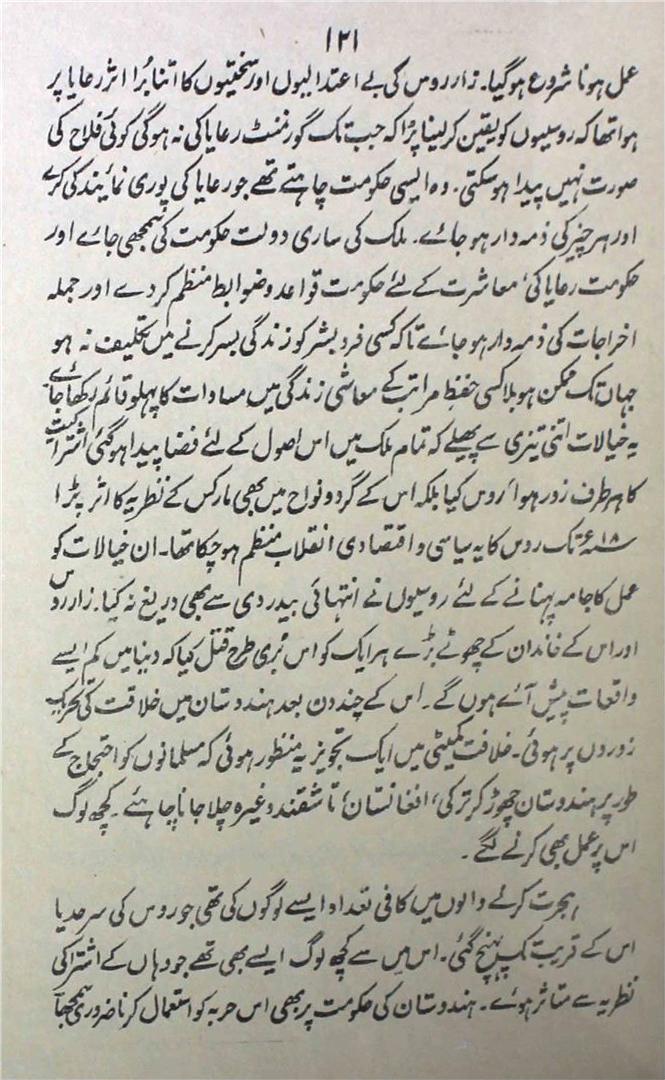 ۱۲۱
عمل ہونا شروع ہو گیا۔ زار روس کی بے اعتدالیوں اور سختیوں کا اتنا بُرا اثر رعایا پر
ہوا تھا کہ روسیوں کو یقین کر لینا پڑا کہ جب تک گورنمنٹ رعایا کی نہ ہو گی کوئی فلاح کی
صورت نہیں پیدا ہو سکتی۔ وہ ایسی حکومت چاہتے تھے جو رعایا کی پوری نمائیندگی کرے
اور ہر چیز کی ذمہ دار ہو جائے۔ ملک کی ساری دولت حکومت کی سمجھی جائے اور
حکومت رعایا کی، معاشرت کے لئے حکومت قواعد و ضوابط منظم کر دے اور جملہ
اخراجات کی ذمہ دار ہو جائے تاکہ کسی فرد بشر کو زندگی بسر کرنے میں تکلیف نہ ہو
جہاں تک ممکن ہو بلا کسی حفظِ مراتب کے معاشی زندگی میں مساوات کا پہلو قائم رکھا جائے۔
یہ خیالات اتنی تیزی سے پھیلے کہ تمام ملک میں اس اصول کے لئے فضا پیدا ہو گئی اشتراکیت
کا ہر طرف زور ہوا، روس کیا بلکہ اس کے گرد و نواح میں بھی مارکس کے نظریہ کا اثر پڑا
۱۸ء تک روس کا یہ سیاسی و اقتصادی انقلاب منظم ہو چکا تھا۔ ان خیالات کو
عمل کا جامہ پہنانے کے لئے روسیوں نے انتہائی بیدردی سے بھی دریغ نہ کیا۔ زار روس
اور اس کے خاندان کے چھوٹے بڑے ہر ایک کو اس بُری طرح قتل کیا کہ دنیا میں کم ایسے
واقعات پیش آئے ہوں گے۔ اس کے چند دن بعد ہندوستان میں خلافت کی تحریک
زوروں پر ہوئی۔ خلافت کمیٹی میں ایک تجویز یہ منظور ہوئی کہ مسلمانوں کو احتجاج کے
طور پر ہندوستان چھوڑ کر ترکی، افغانستان، تاشقند وغیرہ چلا جانا چاہئے۔ کچھ لوگ
اس پر عمل بھی کرنے لگے۔
ہجرت کرنے والوں میں کافی تعداد ایسے لوگوں کی تھی جو روس کی سرحد یا
اس کے قریب تک پہنچ گئی۔ اس میں سے کچھ لوگ ایسے بھی تھے جو وہاں کے اشتراکی
نظریہ سے متاثر ہوئے۔ ہندوستان کی حکومت پر بھی اس حربہ کو استعمال کرنا ضروری سمجھا